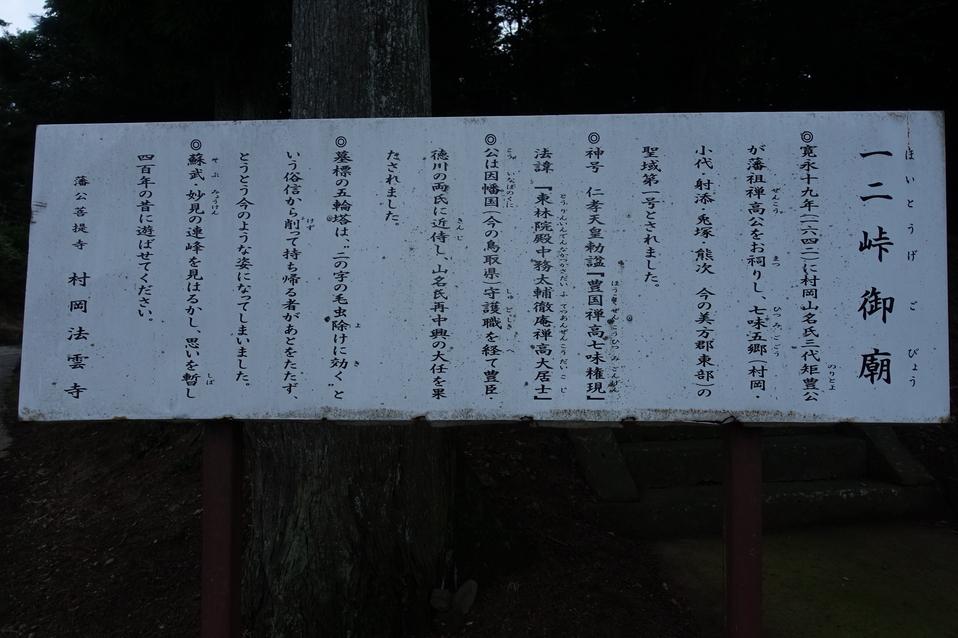 一二峠御廟
◎寛永十九年(一六四二)に村岡山名氏三代矩豊公
が藩祖禅高公をお祠りし、七味五郷(村岡・
小代・射添・兎塚・熊次 今の美方郡東部)の
聖域第一号とされました。
◎神号 仁孝天皇勅諡『豊国禅高七味権現』
法諱 『東林院殿中務太輔徹庵禅高大居士』
◎公は因幡国(今の鳥取県)守護職を経て豊臣・
徳川の両氏に近侍し、山名氏再中興の大任を果
たされました。
◎墓標の五輪塔は、“二の字の毛虫除けに効く”と
いう俗信から削って持ち帰る者があとをたたず、
とうとう今のような姿になってしまいました。
◎蘇武・妙見の連峰を見はるかし、思いを暫し
四百年の昔に遊ばせてください。
藩公菩提寺 村岡法雲寺